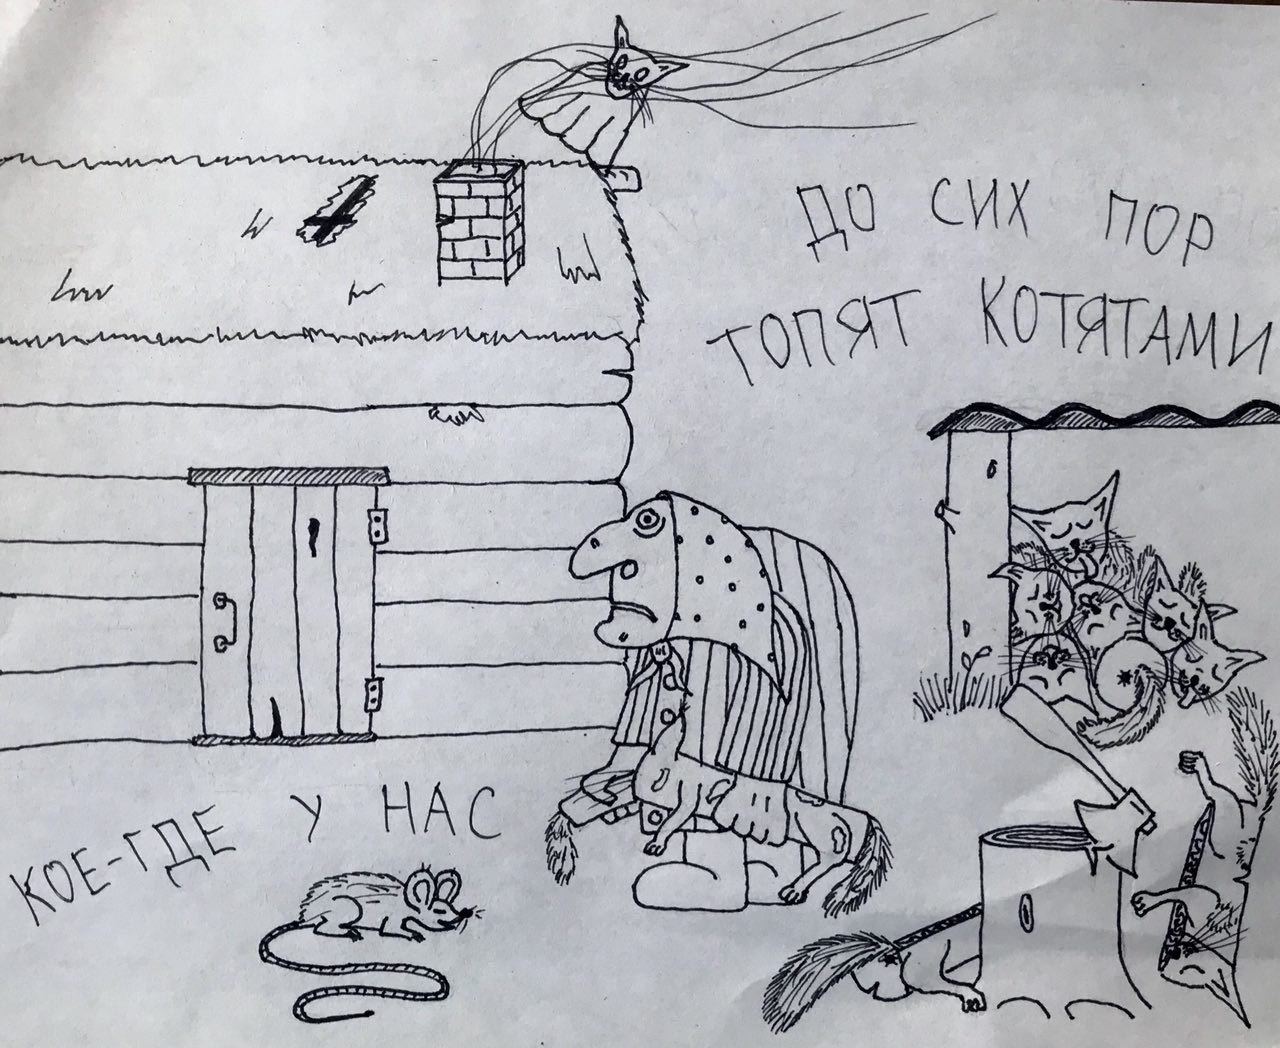 ДО СИХ ПОР
ТОПЯТ КОТЯТАМИ
КОЕ-ГДЕ У НАС